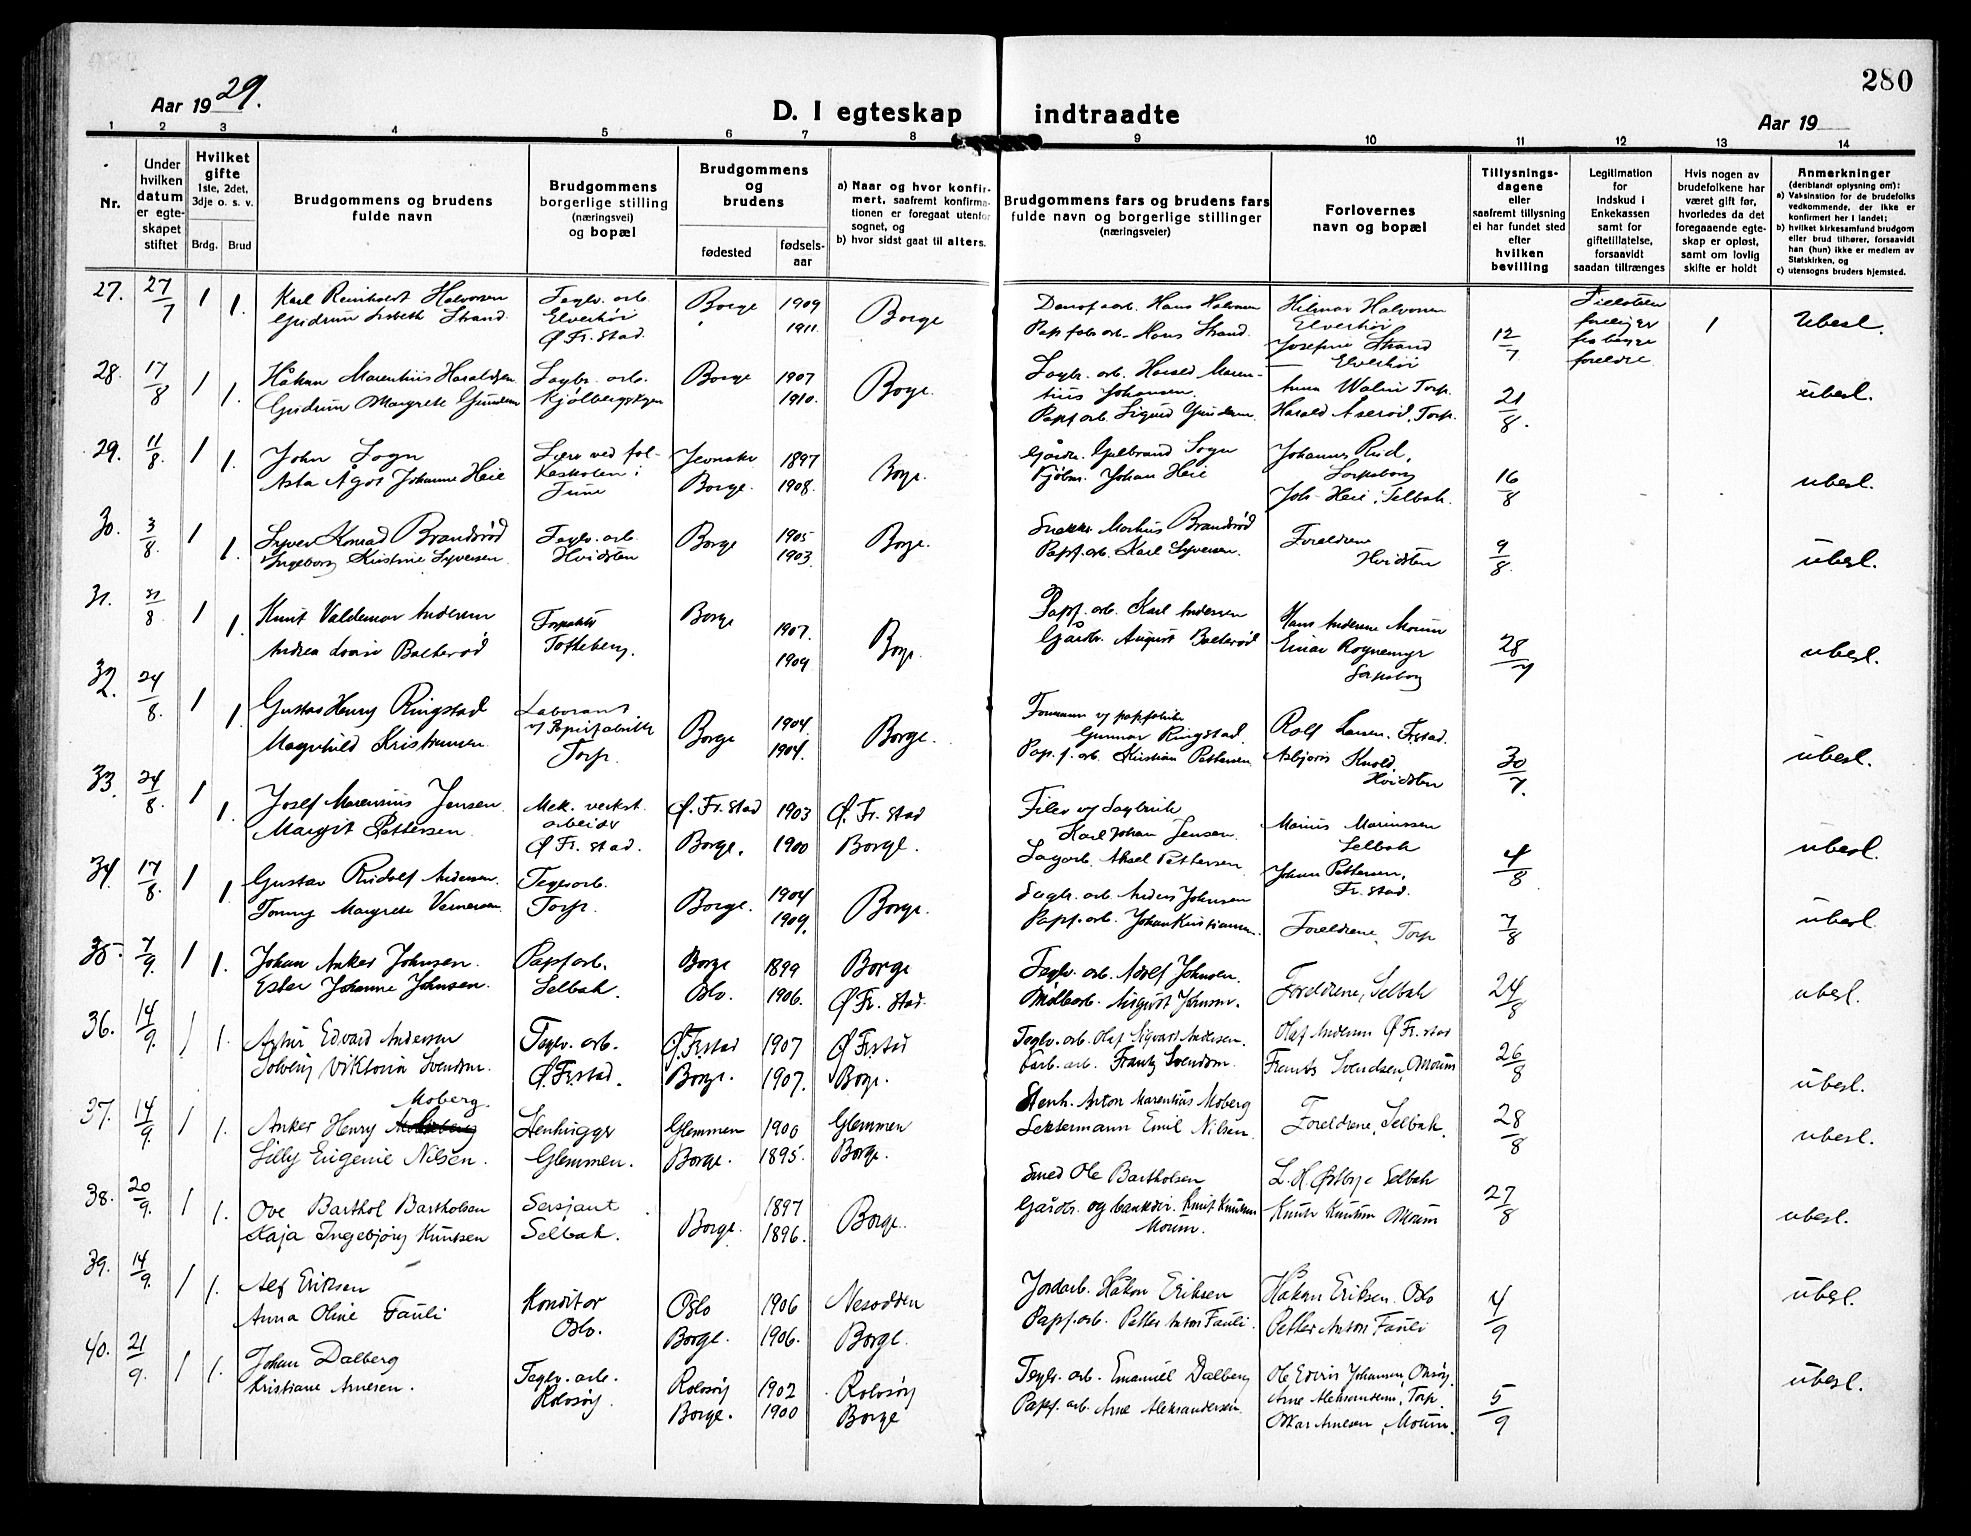 280
Aar 1929.
D. I egteskap indtraadte
Aar 19
1 2 3 4 5 6 7 8 9 10 11 12 13 14
Nr.
Under hvilken datum er egteskapet stiftet
Hvilket gifte 1ste, 2det, 3dje o. s. v.
Brdg. Brud
Brudgommens og brudens fulde navn
Brudgommens borgerlige stilling (næringsvei) og bopæl
Brudgommens og brudens
fødested
fødselsaar
a) Naar og hvor konfirmert, saafremt konfirmationen er foregaat utenfor sognet, og
b) hvor sidst gaat til alters.
Brudgommens fars og brudens fars fulde navn og borgerlige stillinger (næringsveier)
Forlovernes navn og bopæl
Tillysningsdagene eller saafremt tillysning ei har fundet sted efter hvilken bevilling
Legitimation for Indskud i Enkekassen samt for giftetillatelse, forsaavidt saadan tiltrænges
Hvis nogen av brudefolkene har været gift før, hvorledes da det foregaaende egteskap er opløst, samt om lovlig skifte er holdt
Anmerkninger
(deriblandt oplysning om):
a) Vaksination for de brudefolks vedkommende, der ikke er konfirmert her i landet;
b) hvilket kirkesamfund brudgom eller brud tilhører, forsaavidt han (hun) ikke er medlem av Statskirken, og
c) utensogns bruders hjemsted.
27. 27/7 1 1. Karl Reinholdt Halvorsen Teglv. arb. Borge 1909 Borge Hans Halvorsen Hilmar Halvorsen 12/7 1 Ubesl.
Gudrun Lisbeth Strand Elverhöi 1911. Papfabr. arb. Hans Strand Elverhöi
Ø Fr. stad. Josefine Strand Elverhöi foreldre
28. 17/8 1 1. Håkon Marentius Haraldsen Sagbr. arb. Borge 1907 Borge. Sagbr. arb. Harald Marentius Johansen. Torp. 21/8. ubesl.
Gudrun Margrete Kjølbergskogen 1910. Papf. arb. Sigurd Harald Aserød, Torp.
29. 11/8. 1 1. John Sogn Lærer ved folkeskolen i Tune Jevnaker 1897 Borge. Gårdbr. Gulbrand Sogn Johannes Rud, Sarpsborg 16/8 ubesl.
Asta Ågot Johanne Heie Borge. 1908. Johan Heie Joh. Heie, Selbak.
30. 3/8. 1 1. Syver Konrad Brandsrød Teglv. arb. Borge 1905 Borge. Snekker Markus Brandsrød Foreldrene 9/8. ubesl.
Ingeborg Kristine Syversen Hvidsten 1903. Papf. arb. Karl Syversen. Hvidsten
31. 31/8 1 1. Knut Valdemar Andersen Borge 1907. Borge. Papf. arb. Karl Andersen Hans Andersen Moum 28/7 ubesl.
Andrea Lovise Balterød Totheberg. 1909 Gårdbr. August Balterød Einar Rognemyr Sarpsborg
32. 24/8. 1 1. Gustav Henry Ringstad Laborant v/ Papirfabrikk Torp. Borge 1904. Borge. Formann v/ papfabrikk Gunnar Ringstad. Rolf Larsen. Frstad. 30/7. ubesl.
Magnhild Kristiansen 1904. Pap. f. arb. Kristian Pettersen Asbjørn Knold. Hvidsten
33. 24/8. 1 1. Josef Marensius Jensen Mek. verkst. arbeider Ø Fr. stad. Ø. Fr. stad 1903 Ø. Fr. stad Filer v/ Sagbruk Karl Johan Jensen. Marius Marinssen Selbak 4/8 ubesl.
Margit Pettersen. Borge. 1900 Borge. Sagarb. Aksel Pettersen Johan Pettersen, Fr. stad.
34. 17/8. 1 1. Gustav Rudolf Andersen. Teglv. arb. Borge. 1904 Borge. Sagbr. arb. Anders Johnsen Foreldrene, Torp 7/8 ubesl.
Tommy Margrete Vernersen Torp. 1909. Papf. arb. Johan Kristiansen.
35. 7/9. 1 1. Johan Anker Johnsen. Papf arb. Borge 1899 Borge Teglv. arb. Adolf Johnsen. Foreldrene, Selbak 24/8 ubesl.
Ester Johanne Johnsen. Selbak. Oslo. 1906. Ø Fr. stad. August Johnsen.
36. 14/9. 1 1. Artur Edvard Andersen Teglv. arb. Ø. Frstad 1907 Ø Frstad Teglv. arb. Olaf Sigvard Andersen. Olaf Andersen Ø Fr. stad 26/8 ubesl.
Solveig Viktoria Svendsen. Ø. Frstad. Borge. 1907. Borge. Farb. arb. Frantz Svendsen. Frants Svendsen, Moum
37. 14/9. 1 1. Anker Henry Moberg. Stenhugger Glemmen 1900 Glemmen Stenh. Anton Marentius Moberg Foreldrene, Selbak. 28/8 ubesl.
Lilly Eugenie Nilsen. Glemmen. Borge. 1895. Borge. Lektermann Emil Nilsen.
38. 20/9. 1 1. Ove Barthol Bartholsen Sersjant Borge. 1897 Borge. Smed Ole Bartholsen L. H. Østbye Selbak 27/8 ubesl.
Kaja Ingebjørg Knutsen Selbak. 1896. Gårdbr. og bankdir. Knut Knutsen Moum. Knut Knutsen Moum
39. 14/9. 1 1. Alf Eriksen Konditor Oslo 1906 Nesodden Jordarb. Håkon Eriksen Håkon Eriksen. Oslo 4/9 ubesl.
Anna Oline Fauli Oslo. Borge. 1906. Borge. Papf. arb. Petter Anton Fauli. Petter Anton Fauli
40. 21/9. 1 1. Johan Dalberg Teglv. arb. Rolvsøy 1902 Rolvsøy Teglv. arb. Emanuel Dalberg Ole Edvin Johannsen, Onsøy. 5/9 ubesl.
Kristiane Arnesen. Rolvsøy. Borge. 1900 Borge Papf. arb. Arne Aleksandersen. Arne Aleksandersen, Torp
Oskar Arnesen, Moum.